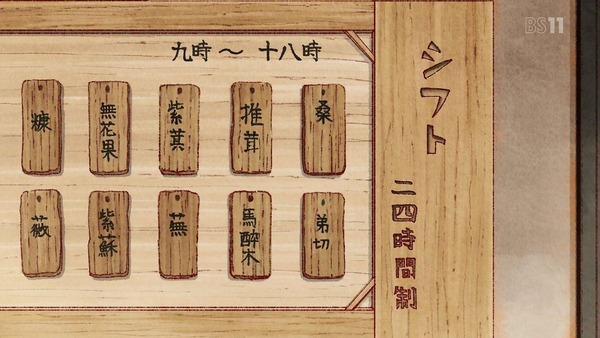 BS11
シフト
二四時間制
九時～十八時
桑
椎茸
紫萁
無花果
糠
弟切
馬酔木
蕪
紫蘇
薇